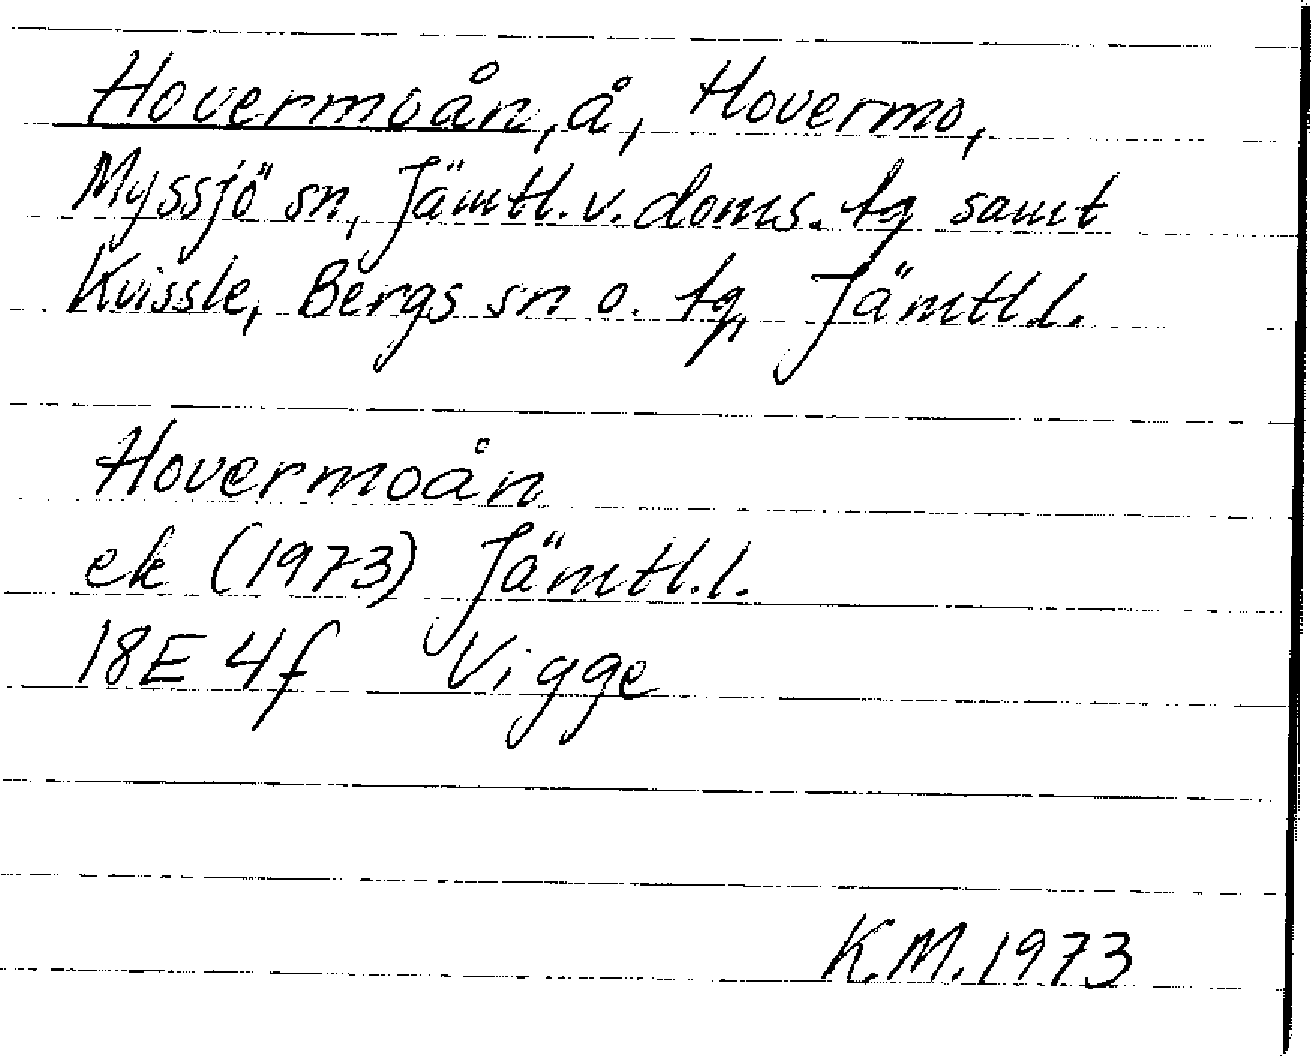 Hovermoån, å, Hovermo,
Myssjö sn, Jämtl. v. doms. tg samt
Kvissle, Bergs sn o. tg, Jämtl. l.
Hovermoån
ek (1973) Jämtl. l.
18E 4f Vigge
K.M. 1973